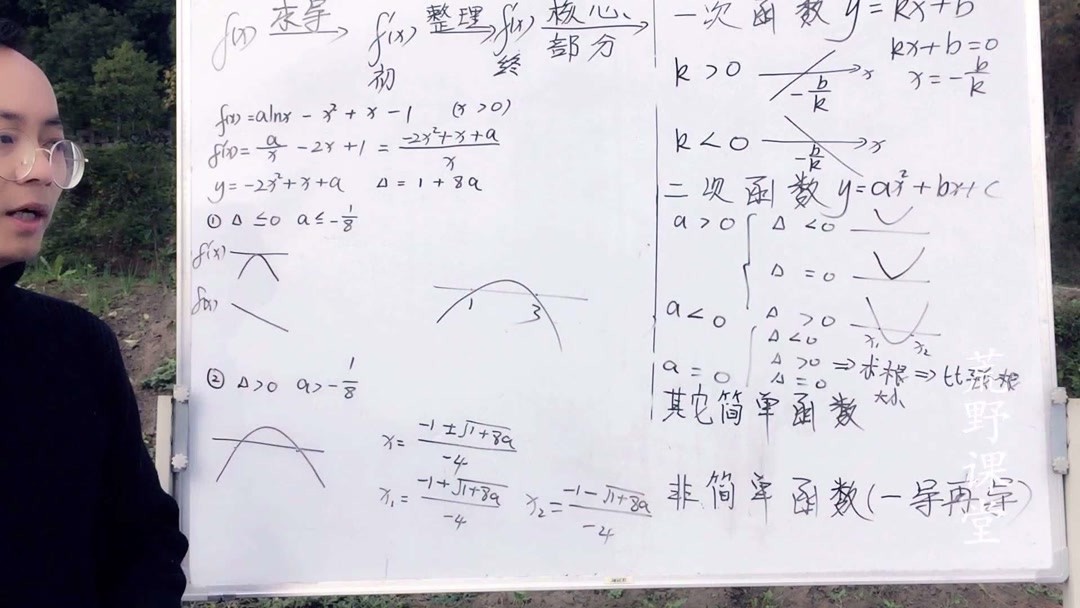 f(x) 求导 f'(x) 整理 f'(x) 核心
初 终 部分
f(x)=alnx-x²+x-1 (x>0)
f'(x)=a/x-2x+1=(-2x²+x+a)/x
y=-2x²+x+a Δ=1+8a
① Δ≤0 a≤-1/8
f'(x)
f(x)
1 3
② Δ>0 a>-1/8
x=(-1±√(1+8a))/-4
x₁=(-1+√(1+8a))/-4 x₂=(-1-√(1+8a))/-4
一次函数 y=kx+b
k>0 x kx+b=0
-b/k x=-b/k
k<0 x
-b/k
二次函数 y=ax²+bx+c
a>0 Δ<0
Δ=0
Δ>0 x₁ x₂
a<0 Δ<0
Δ>0 ⇒求根⇒比较根
大小
Δ=0
a=0
其它简单函数
非简单函数(一导再导)
野课堂